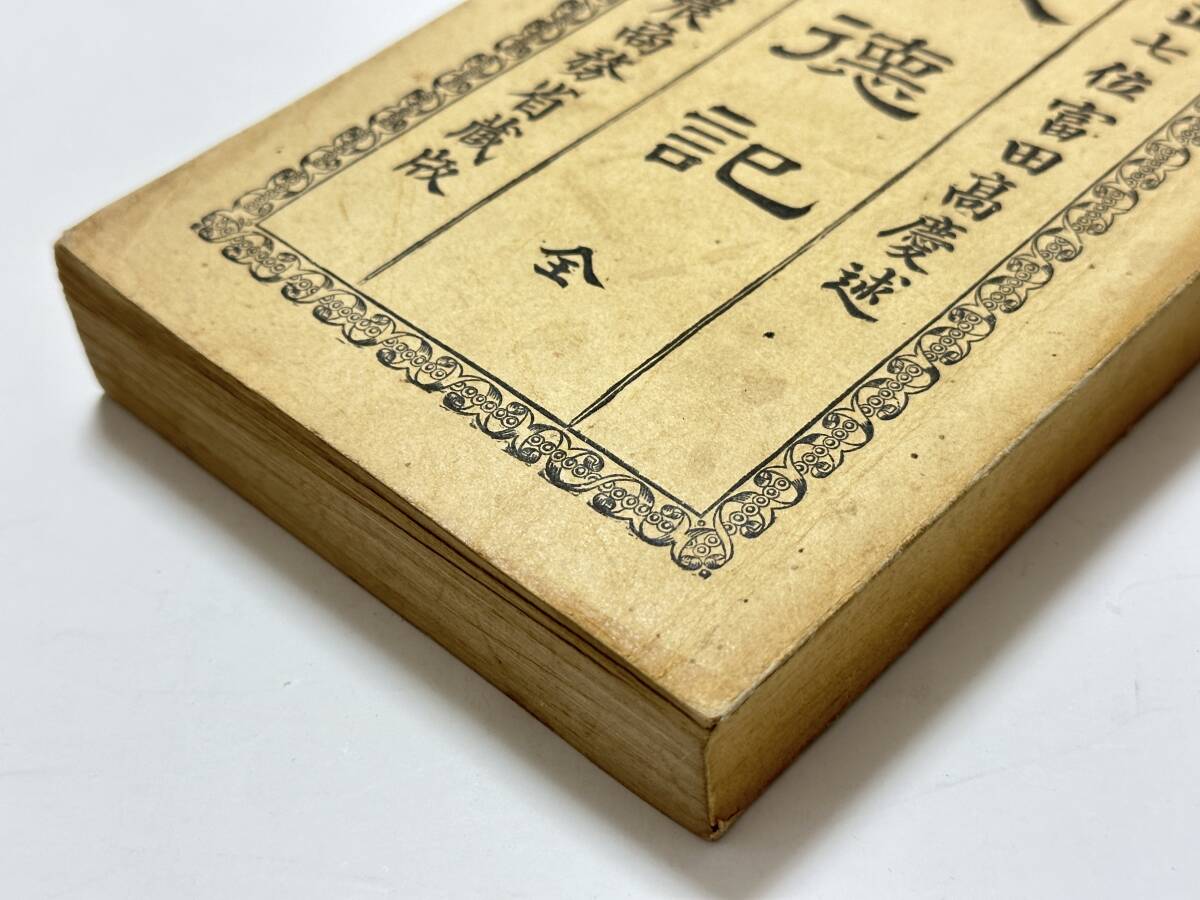 正七位富田高慶述
德記
全
農商務省蔵版